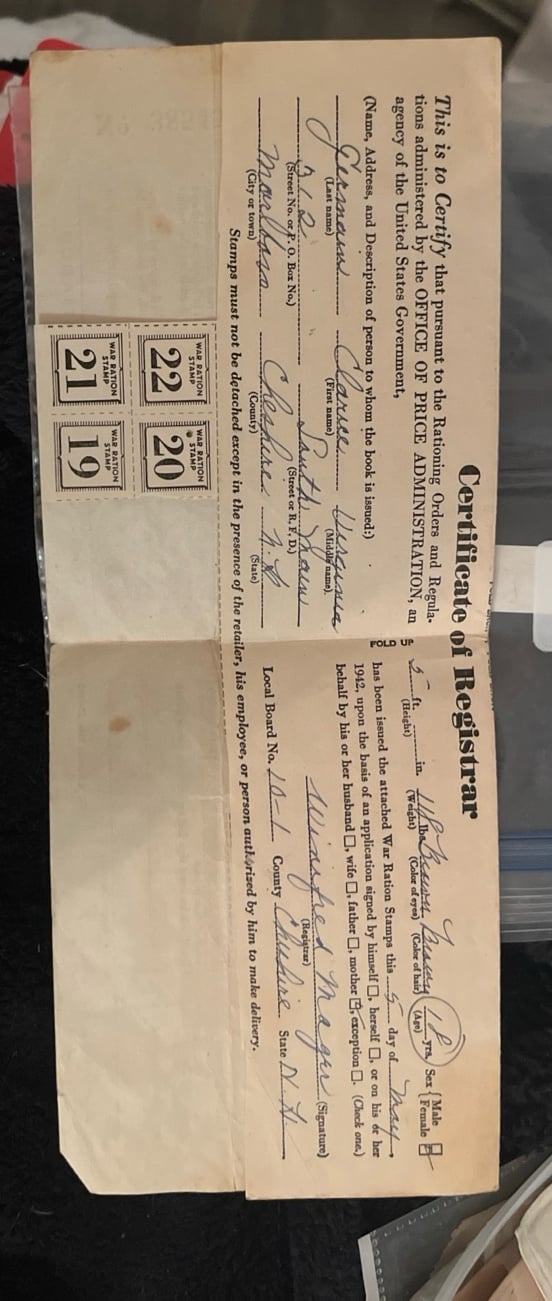 Certificate of Registrar
This is to Certify that pursuant to the Rationing Orders and Regula-
tions administered by the OFFICE OF PRICE ADMINISTRATION, an
agency of the United States Government,
(Name, Address, and Description of person to whom the book is issued:)
Germain Clarice Virginia
(Last name) (First name) (Middle name)
512 South Main
(Street No. or P. O. Box No.) (Street or R. F. D.)
Marlboro Cheshire N.H
(City or town) (County) (State)
5 ft. in. lbs. Brown Brown 18 yrs. Sex { Male
Female
(Height) (Weight) (Color of eyes) (Color of hair) (Age)
has been issued the attached War Ration Stamps this 5 day of May,
1942, upon the basis of an application signed by himself □, herself □, or on his or her
behalf by his or her husband □, wife □, father □, mother ☑, exception □. (Check one.)
Winifred Mager (Signature)
(Registrar)
Local Board No. 10-1 County Cheshire State N.H
Stamps must not be detached except in the presence of the retailer, his employee, or person authorized by him to make delivery.
WAR RATION
STAMP
22
WAR RATION
STAMP
20
WAR RATION
STAMP
21
WAR RATION
STAMP
19